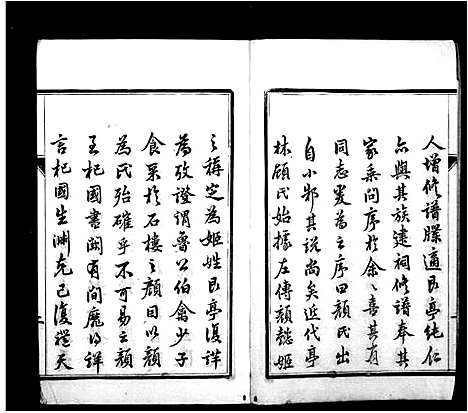 人增修譜牒適艮亭純仁
亦與其族建祠修譜奉其
家乘問序於余余喜其有
同志爰為之序曰顏氏出
自小邾其說尚矣近代亭
林顧氏始據左傳顏懿姬
之稱定為姬姓艮亭復詳
為攷證謂魯公伯禽少子
食采於石樓之顏因以顏
為氏殆確乎不可易之顏
王杞國書闕有間靡得詳
言杞國生淵克己復禮天